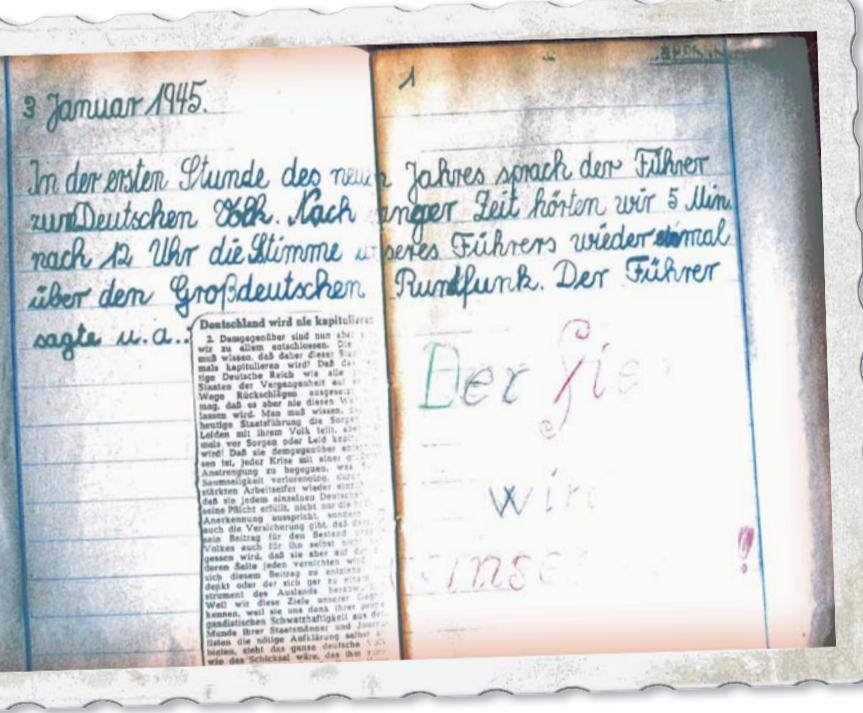 3 Januar 1945.
1
In der ersten Stunde des neuen Jahres sprach der Führer
zum Deutschen Volk. Nach langer Zeit hörten wir 5 Min.
nach 12 Uhr die Stimme unseres Führers wieder einmal
über den Großdeutschen Rundfunk. Der Führer
sagte u. a.:
Deutschland wird nie kapitulieren
2. Demgegenüber sind nun aber
wir zu allem entschlossen. Die
muß wissen, daß daher dieser
mals kapitulieren wird! Daß das
tige Deutsche Reich wie alle
Staaten der Vergangenheit auf
Wege Rückschlägen ausgesetzt
mag, daß es aber nie diesen
lassen wird. Man muß wissen,
heutige Staatsführung die Sorgen
Leiden mit ihrem Volk teilt, aber
mals vor Sorgen oder Leid
wird! Daß sie demgegenüber
sen ist, jeder Krise mit einer
Anstrengung zu begegnen, was
Saumseligkeit verlorenging, durch
stärkten Arbeitseifer wieder
daß sie jedem einzelnen Deutschen
seine Pflicht erfüllt, nicht nur die
Anerkennung ausspricht, sondern
auch die Versicherung gibt, daß
sein Beitrag für den Bestand
Volkes auch für ihn selbst
gessen wird, daß sie aber auf der
deren Seite jeden vernichten
sich diesem Beitrag zu
denkt oder der sich gar zu einem
strument des Auslands
Weil wir diese Ziele unserer
kennen, weil sie uns dank ihrer
gandistischen Schwatzhaftigkeit aus dem
Munde ihrer Staatsmänner und
listen die nötige Aufklärung selbst
bigten, sieht das ganze deutsche
wie das Schicksal wäre, das ihm
Der Sie
wird
!